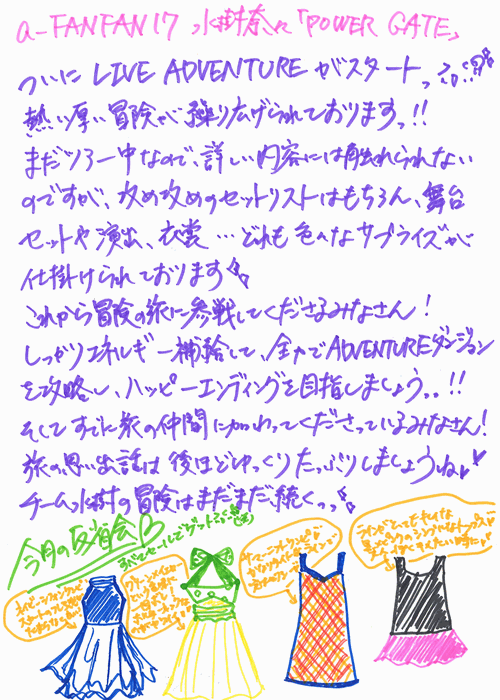 a-FANFAN 17 水樹奈々「POWER GATE」
ついに LIVE ADVENTURE がスタートっ
熱い厚い冒険が繰り広げられておりますっ!!
まだツアー中なので、詳しい内容には触れられない
のですが、攻め攻めのセットリストはもちろん、舞台
セットや演出、衣裳…どれも色々なサプライズが
仕掛けられております
これから冒険の旅に参戦してくださるみなさん!
しっかりエネルギー補給して、全力でADVENTUREダンジョン
を攻略し、ハッピーエンディングを目指しましょう。。!!
そしてすでに旅の仲間に加わってくださっているみなさん!
旅の思い出話は後ほどゆっくりたっぷりしましょうね
チーム水樹の冒険はまだまだ続くっっ
今月の反省会
すべてセールでゲットぶく